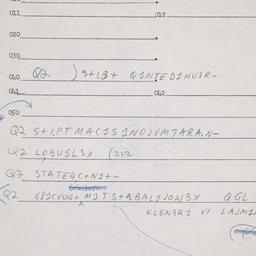 011 012
020
030
040 Q2 ) S+1.B+ Q1NTED1HU3R-
041 042
050
Q2 S+1.PTMAC1S1NOJVM7ARA.N-
Q2 LQBUSL3X (212
Q2 STATE4C+N1+-
Q2 G81CVUG+M1TS+ABAL1JOW3X QGL
KLEN3R1 VI LAJM1